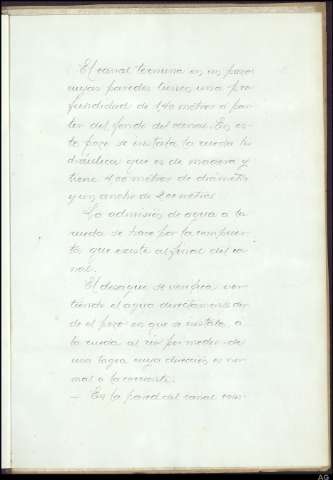 El canal termina en un pozo
cuyas paredes tienen una pro
fundidad de 1'40 metros á par-
tir del fondo del canal. En es-
te pozo se instala la rueda hi
dráulica que es de madera y
tiene 4'00 metros de diámetro
y un ancho de 2'00 metros
La admision de agua a la
rueda se hace por la compuer-
ta que existe al final del ca
nal.
El desagüe se verifica ver-
tiendo el agua directamente des
de el pozo en que se instala a
la rueda al rio por medio de
una tagea cuya direccion es nor-
mal a la corriente.
— En la pared del canal
AG